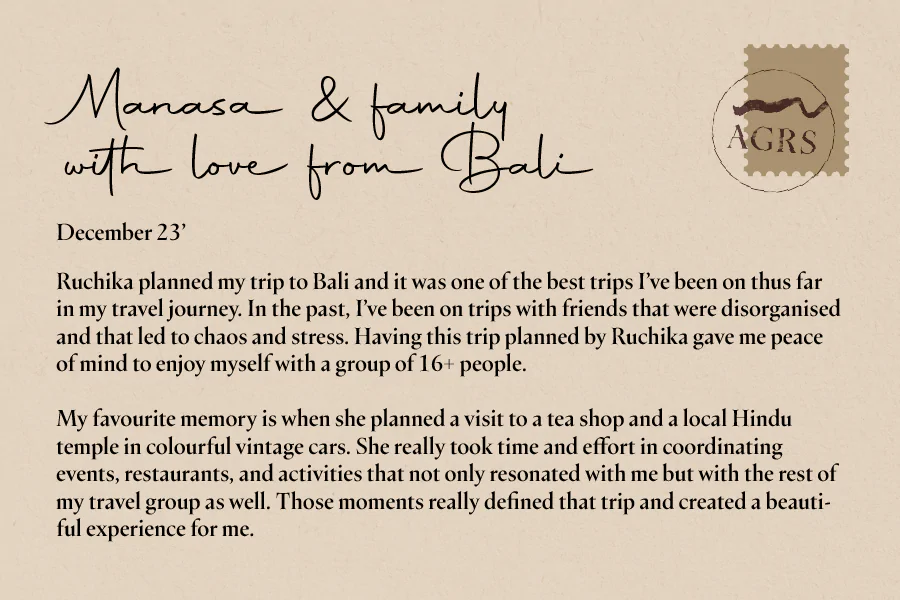 Manasa & family
with love from Bali
AGRS
December 23’
Ruchika planned my trip to Bali and it was one of the best trips I’ve been on thus far
in my travel journey. In the past, I’ve been on trips with friends that were disorganised
and that led to chaos and stress. Having this trip planned by Ruchika gave me peace
of mind to enjoy myself with a group of 16+ people.
My favourite memory is when she planned a visit to a tea shop and a local Hindu
temple in colourful vintage cars. She really took time and effort in coordinating
events, restaurants, and activities that not only resonated with me but with the rest of
my travel group as well. Those moments really defined that trip and created a beauti-
ful experience for me.